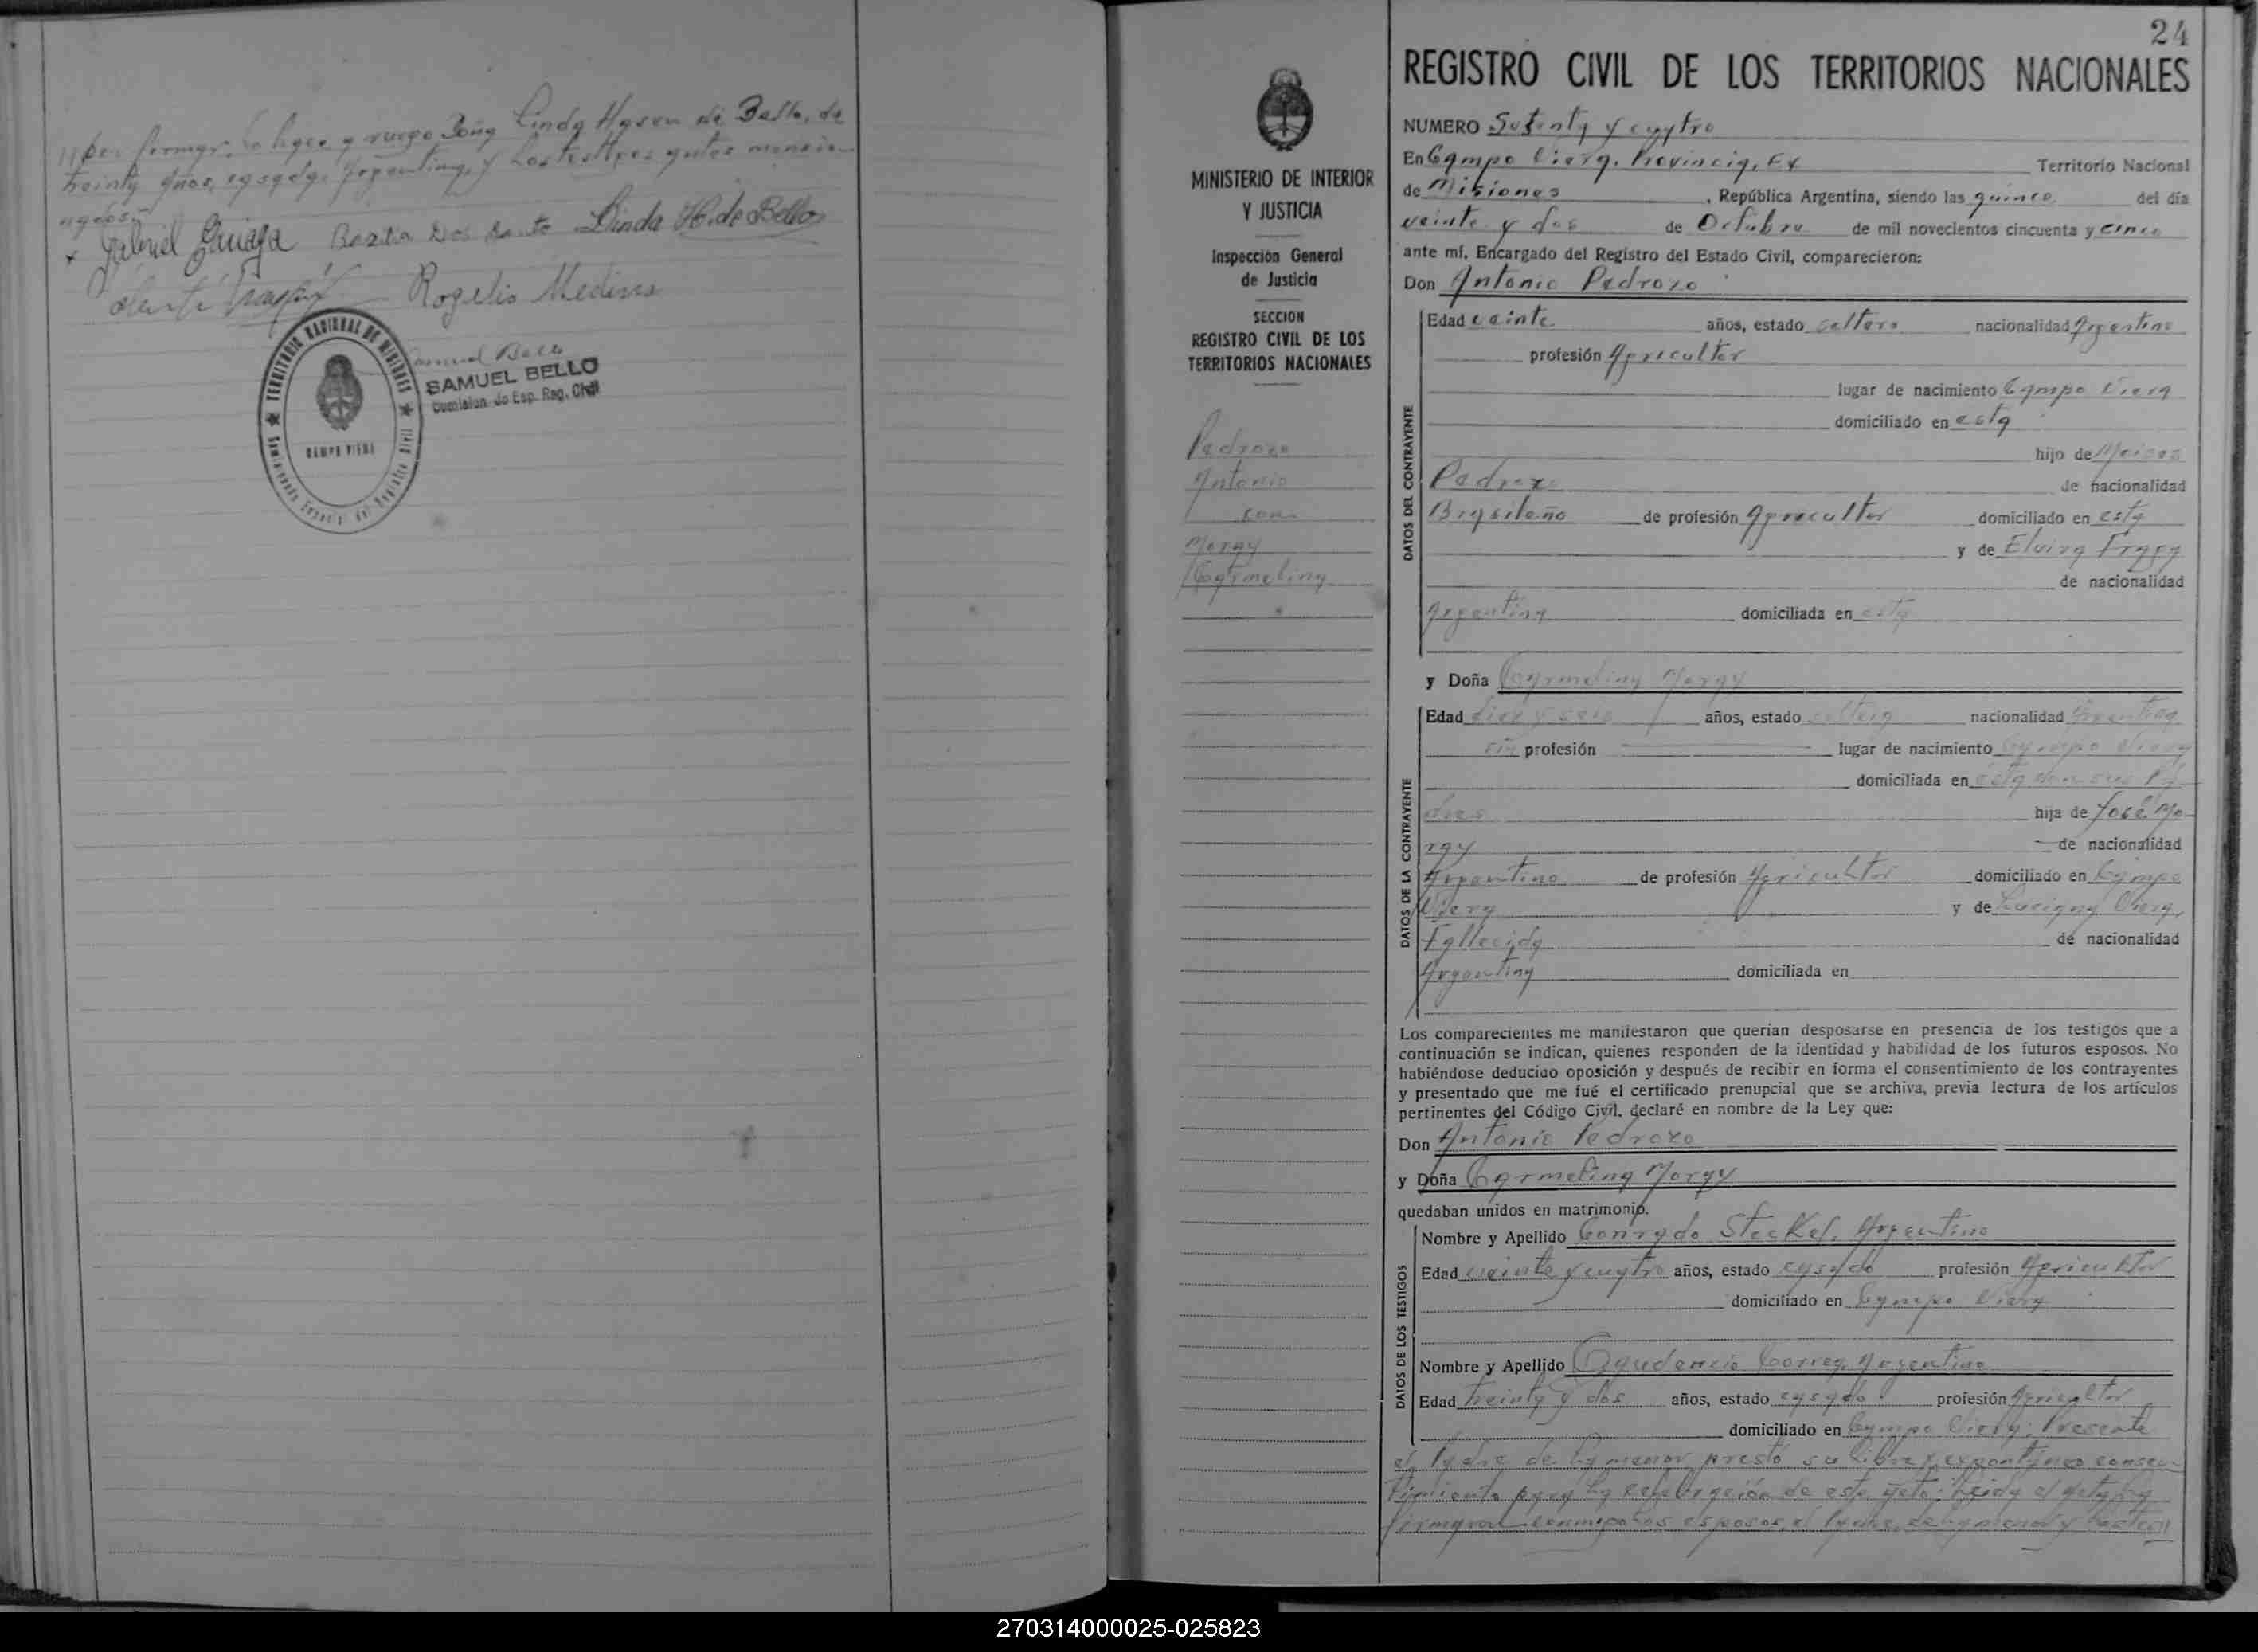 por firmar, lo hace a ruego Doña Linda Hasen de Bello, de
treinta años, casada, Argentina, y los testigos antes mencio-
nados.-
Gabriel Bazilio Dos Santo Linda H. de Bello
Rogelio Medina
TERRITORIO NACIONAL DE MISIONES
CAMPO VIERA
Samuel Bello
SAMUEL BELLO
Comision. de Esp. Reg. Civil
24
MINISTERIO DE INTERIOR
Y JUSTICIA
Inspección General
de Justicia
SECCION
REGISTRO CIVIL DE LOS
TERRITORIOS NACIONALES
Pedrozo
Antonio
con
Moray
Carmelina
REGISTRO CIVIL DE LOS TERRITORIOS NACIONALES
NUMERO Setenta y cuatro
En Campo Viera, Provincia, Ex Territorio Nacional
de Misiones, República Argentina, siendo las quince del día
veinte y dos de Octubre de mil novecientos cincuenta y cinco
ante mí, Encargado del Registro del Estado Civil, comparecieron:
Don Antonio Pedrozo
DATOS DEL CONTRAYENTE
Edad veinte años, estado soltero nacionalidad Argentino
profesión Agricultor
lugar de nacimiento Campo Viera
domiciliado en esta
hijo de Moises
Pedrozo de nacionalidad
Brasileño de profesión Agricultor domiciliado en esta
y de Elvira Fraga
de nacionalidad
Argentina domiciliada en esta
y Doña Carmelina Moray
DATOS DE LA CONTRAYENTE
Edad diez y seis años, estado soltera nacionalidad Argentina
sin profesión lugar de nacimiento Campo Viera
domiciliada en esta con sus Pa-
dres hija de José Mo-
ray de nacionalidad
Argentino de profesión Agricultor domiciliado en Campo
Viera y de Luciana Viera,
Fallecida de nacionalidad
Argentina domiciliada en
Los comparecientes me manifestaron que querían desposarse en presencia de los testigos que a
continuación se indican, quienes responden de la identidad y habilidad de los futuros esposos. No
habiéndose deducido oposición y después de recibir en forma el consentimiento de los contrayentes
y presentado que me fué el certificado prenupcial que se archiva, previa lectura de los artículos
pertinentes del Código Civil, declaré en nombre de la Ley que:
Don Antonio Pedrozo
y Doña Carmelina Moray
quedaban unidos en matrimonio.
DATOS DE LOS TESTIGOS
Nombre y Apellido Conrado Steckel, Argentino
Edad veinte y cuatro años, estado casado profesión Agricultor
domiciliado en Campo Viera
Nombre y Apellido Gaudencio Correa, Argentino
Edad treinta y dos años, estado casado profesión Agricultor
domiciliado en Campo Viera: Presente
el Padre de la menor, prestó su libre y expontaneo consen-
timiento para la celebración de este acto: Leida el acta, la
firmaron conmigo los esposos, el Padre de la menor y
270314000025-025823